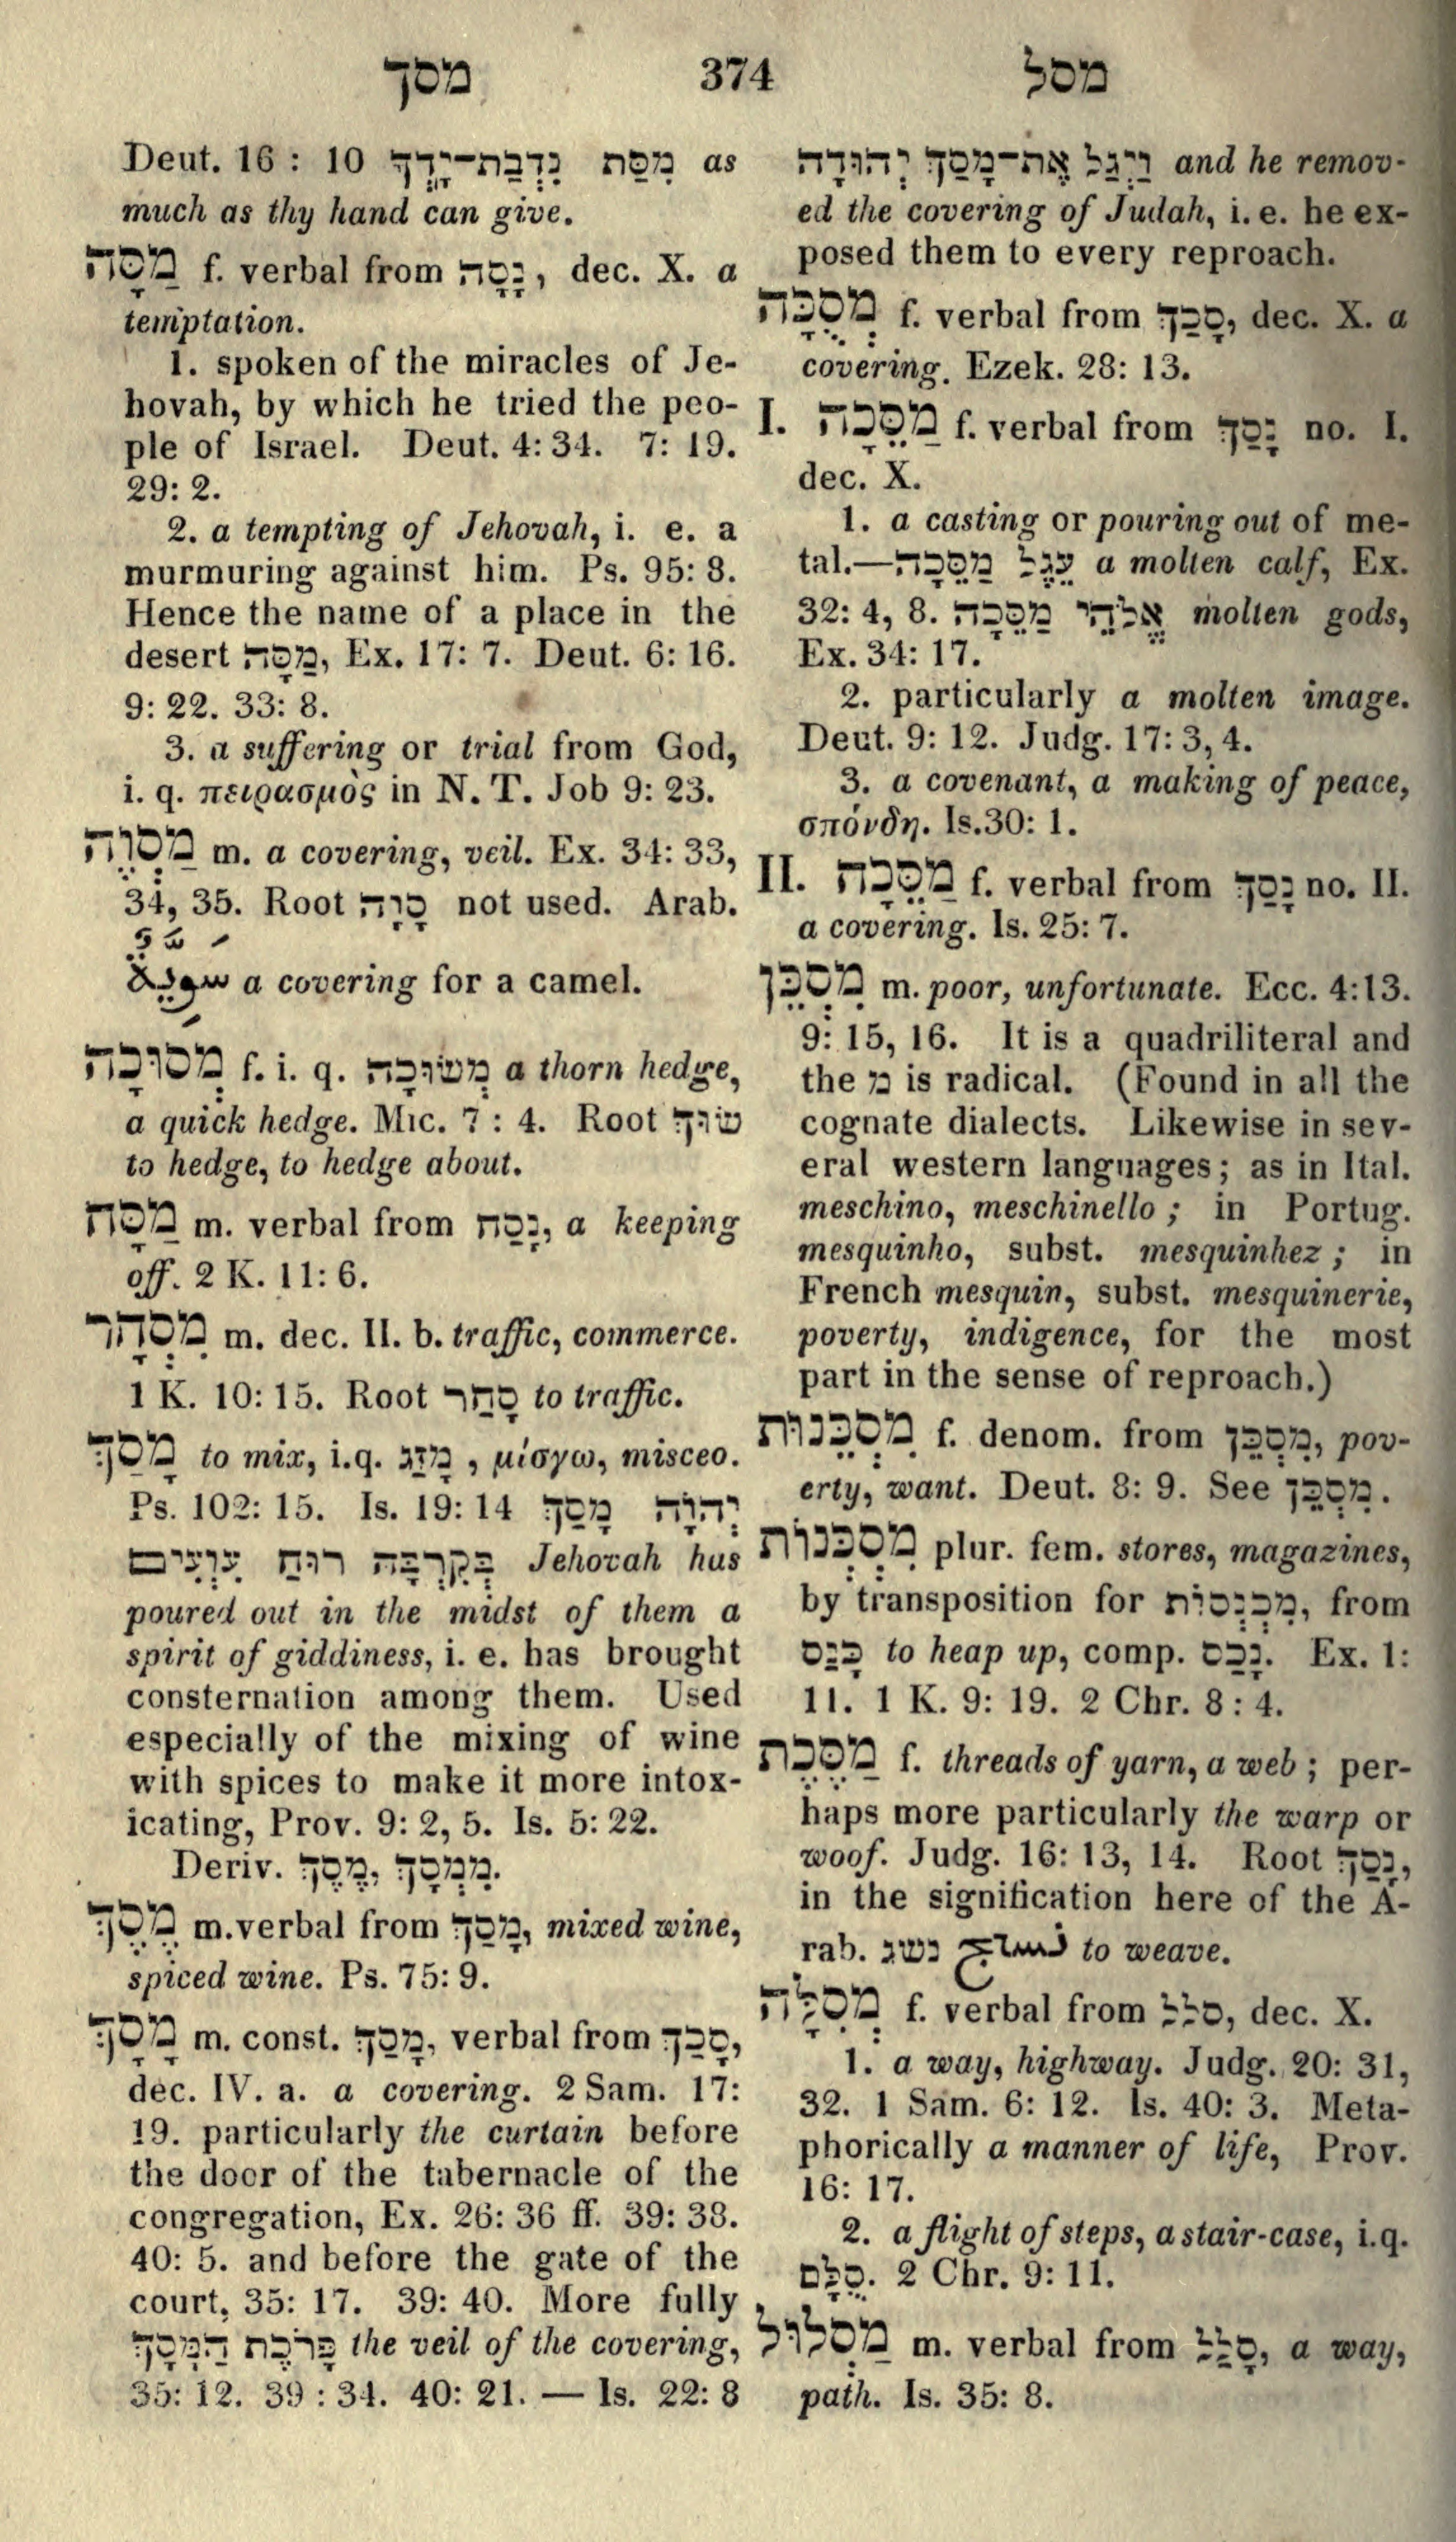 מסך 374 מסל
Deut. 16 : 10 מִסַּת נִדְבַת־יָדְךָ as
much as thy hand can give.
מַסָּה f. verbal from נָסָה, dec. X. a
temptation.
1. spoken of the miracles of Je-
hovah, by which he tried the peo-
ple of Israel. Deut. 4: 34. 7: 19.
29: 2.
2. a tempting of Jehovah, i. e. a
murmuring against him. Ps. 95: 8.
Hence the name of a place in the
desert מַסָּה, Ex. 17: 7. Deut. 6: 16.
9: 22. 33: 8.
3. a suffering or trial from God,
i. q. πειρασμὸς in N. T. Job 9: 23.
מַסְוֶה m. a covering, veil. Ex. 34: 33,
34, 35. Root סָוָה not used. Arab.
a covering for a camel.
מְסוּכָה f. i. q. מְשׂוּכָה a thorn hedge,
a quick hedge. Mic. 7 : 4. Root שׂוּךְ
to hedge, to hedge about.
מַסָּח m. verbal from נָסַח, a keeping
off. 2 K. 11: 6.
מִסְחָר m. dec. II. b. traffic, commerce.
1 K. 10: 15. Root סָחַר to traffic.
מָסַךְ to mix, i.q. מָזַג , μίσγω, misceo.
Ps. 102: 15. Is. 19: 14 יְהוָֹה מָסַךְ
בְּקִרְבָּהּ רוּחַ עִוְעִים Jehovah has
poured out in the midst of them a
spirit of giddiness, i. e. has brought
consternation among them. Used
especially of the mixing of wine
with spices to make it more intox-
icating, Prov. 9: 2, 5. Is. 5: 22.
Deriv. מֶסֶךְ, מִמְסָךְ.
מֶסֶךְ m. verbal from מָסַךְ, mixed wine,
spiced wine. Ps. 75: 9.
מָסָךְ m. const. מָסַךְ, verbal from סָכַךְ,
dec. IV. a. a covering. 2 Sam. 17:
19. particularly the curtain before
the door of the tabernacle of the
congregation, Ex. 26: 36 ff. 39: 38.
40: 5. and before the gate of the
court, 35: 17. 39: 40. More fully
פָּרֹכֶת הַמָּסָךְ the veil of the covering,
35: 12. 39 : 34. 40: 21. — Is. 22: 8
וַיְגַל אֶת־מָסַךְ יְהוּדָה and he remov-
ed the covering of Judah, i. e. he ex-
posed them to every reproach.
מְסֻכָּה f. verbal from סָכַךְ, dec. X. a
covering. Ezek. 28: 13.
I. מַסֵּכָה f. verbal from נָסַךְ no. I.
dec. X.
1. a casting or pouring out of me-
tal.—עֵגֶל מַסֵּכָה a molten calf, Ex.
32: 4, 8. אֱלֹהֵי מַסֵּכָה molten gods,
Ex. 34: 17.
2. particularly a molten image.
Deut. 9: 12. Judg. 17: 3, 4.
3. a covenant, a making of peace,
σπόνδη. Is. 30: 1.
II. מַסֵּכָה f. verbal from נָסַךְ no. II.
a covering. Is. 25: 7.
מִסְכֵּן m. poor, unfortunate. Ecc. 4:13.
9: 15, 16. It is a quadriliteral and
the מ is radical. (Found in all the
cognate dialects. Likewise in sev-
eral western languages; as in Ital.
meschino, meschinello ; in Portug.
mesquinho, subst. mesquinhez ; in
French mesquin, subst. mesquinerie,
poverty, indigence, for the most
part in the sense of reproach.)
מִסְכֵּנוּת f. denom. from מִסְכֵּן, pov-
erty, want. Deut. 8: 9. See מִסְכֵּן .
מִסְכְּנוֹת plur. fem. stores, magazines,
by transposition for מִכְנְסוֹת, from
כָּנַס to heap up, comp. נָכַס. Ex. 1:
11. 1 K. 9: 19. 2 Chr. 8 : 4.
מַסֶּכֶת f. threads of yarn, a web ; per-
haps more particularly the warp or
woof. Judg. 16: 13, 14. Root נָסַךְ,
in the signification here of the A-
rab. נשג نسج to weave.
מְסִלָּה f. verbal from סלל, dec. X.
1. a way, highway. Judg. 20: 31,
32. 1 Sam. 6: 12. Is. 40: 3. Meta-
phorically a manner of life, Prov.
16: 17.
2. a flight of steps, a stair-case, i.q.
סֻלָּם. 2 Chr. 9: 11.
מַסְלוּל m. verbal from סָלַל, a way,
path. Is. 35: 8.